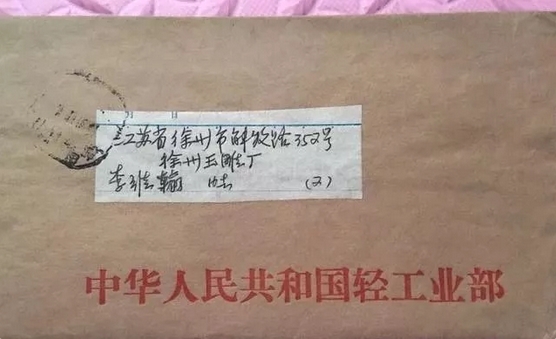 江苏省徐州市解放路352号
徐州玉雕厂
李维翰 (2)
中华人民共和国轻工业部